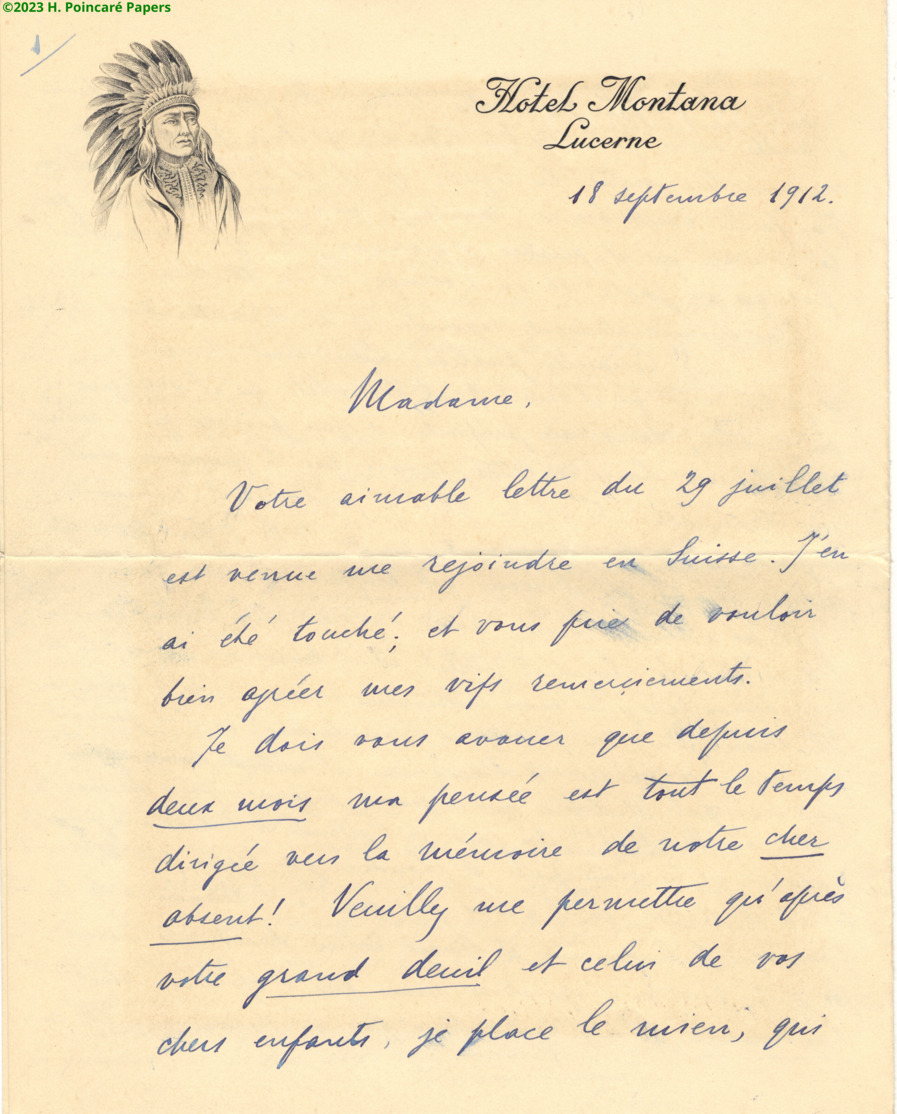 ©2023 H. Poincaré Papers
1
Hotel Montana
Lucerne
18 septembre 1912.
Madame,
Votre aimable lettre du 29 juillet
est venue me rejoindre en Suisse. J'en
ai été touché; et vous prie de vouloir
bien agréer mes vifs remerciements.
Je dois vous avouer que depuis
deux mois ma pensée est tout le temps
dirigée vers la mémoire de notre cher
absent! Veuillez me permettre qu'après
votre grand deuil et celui de vos
chers enfants, je place le mien, qui